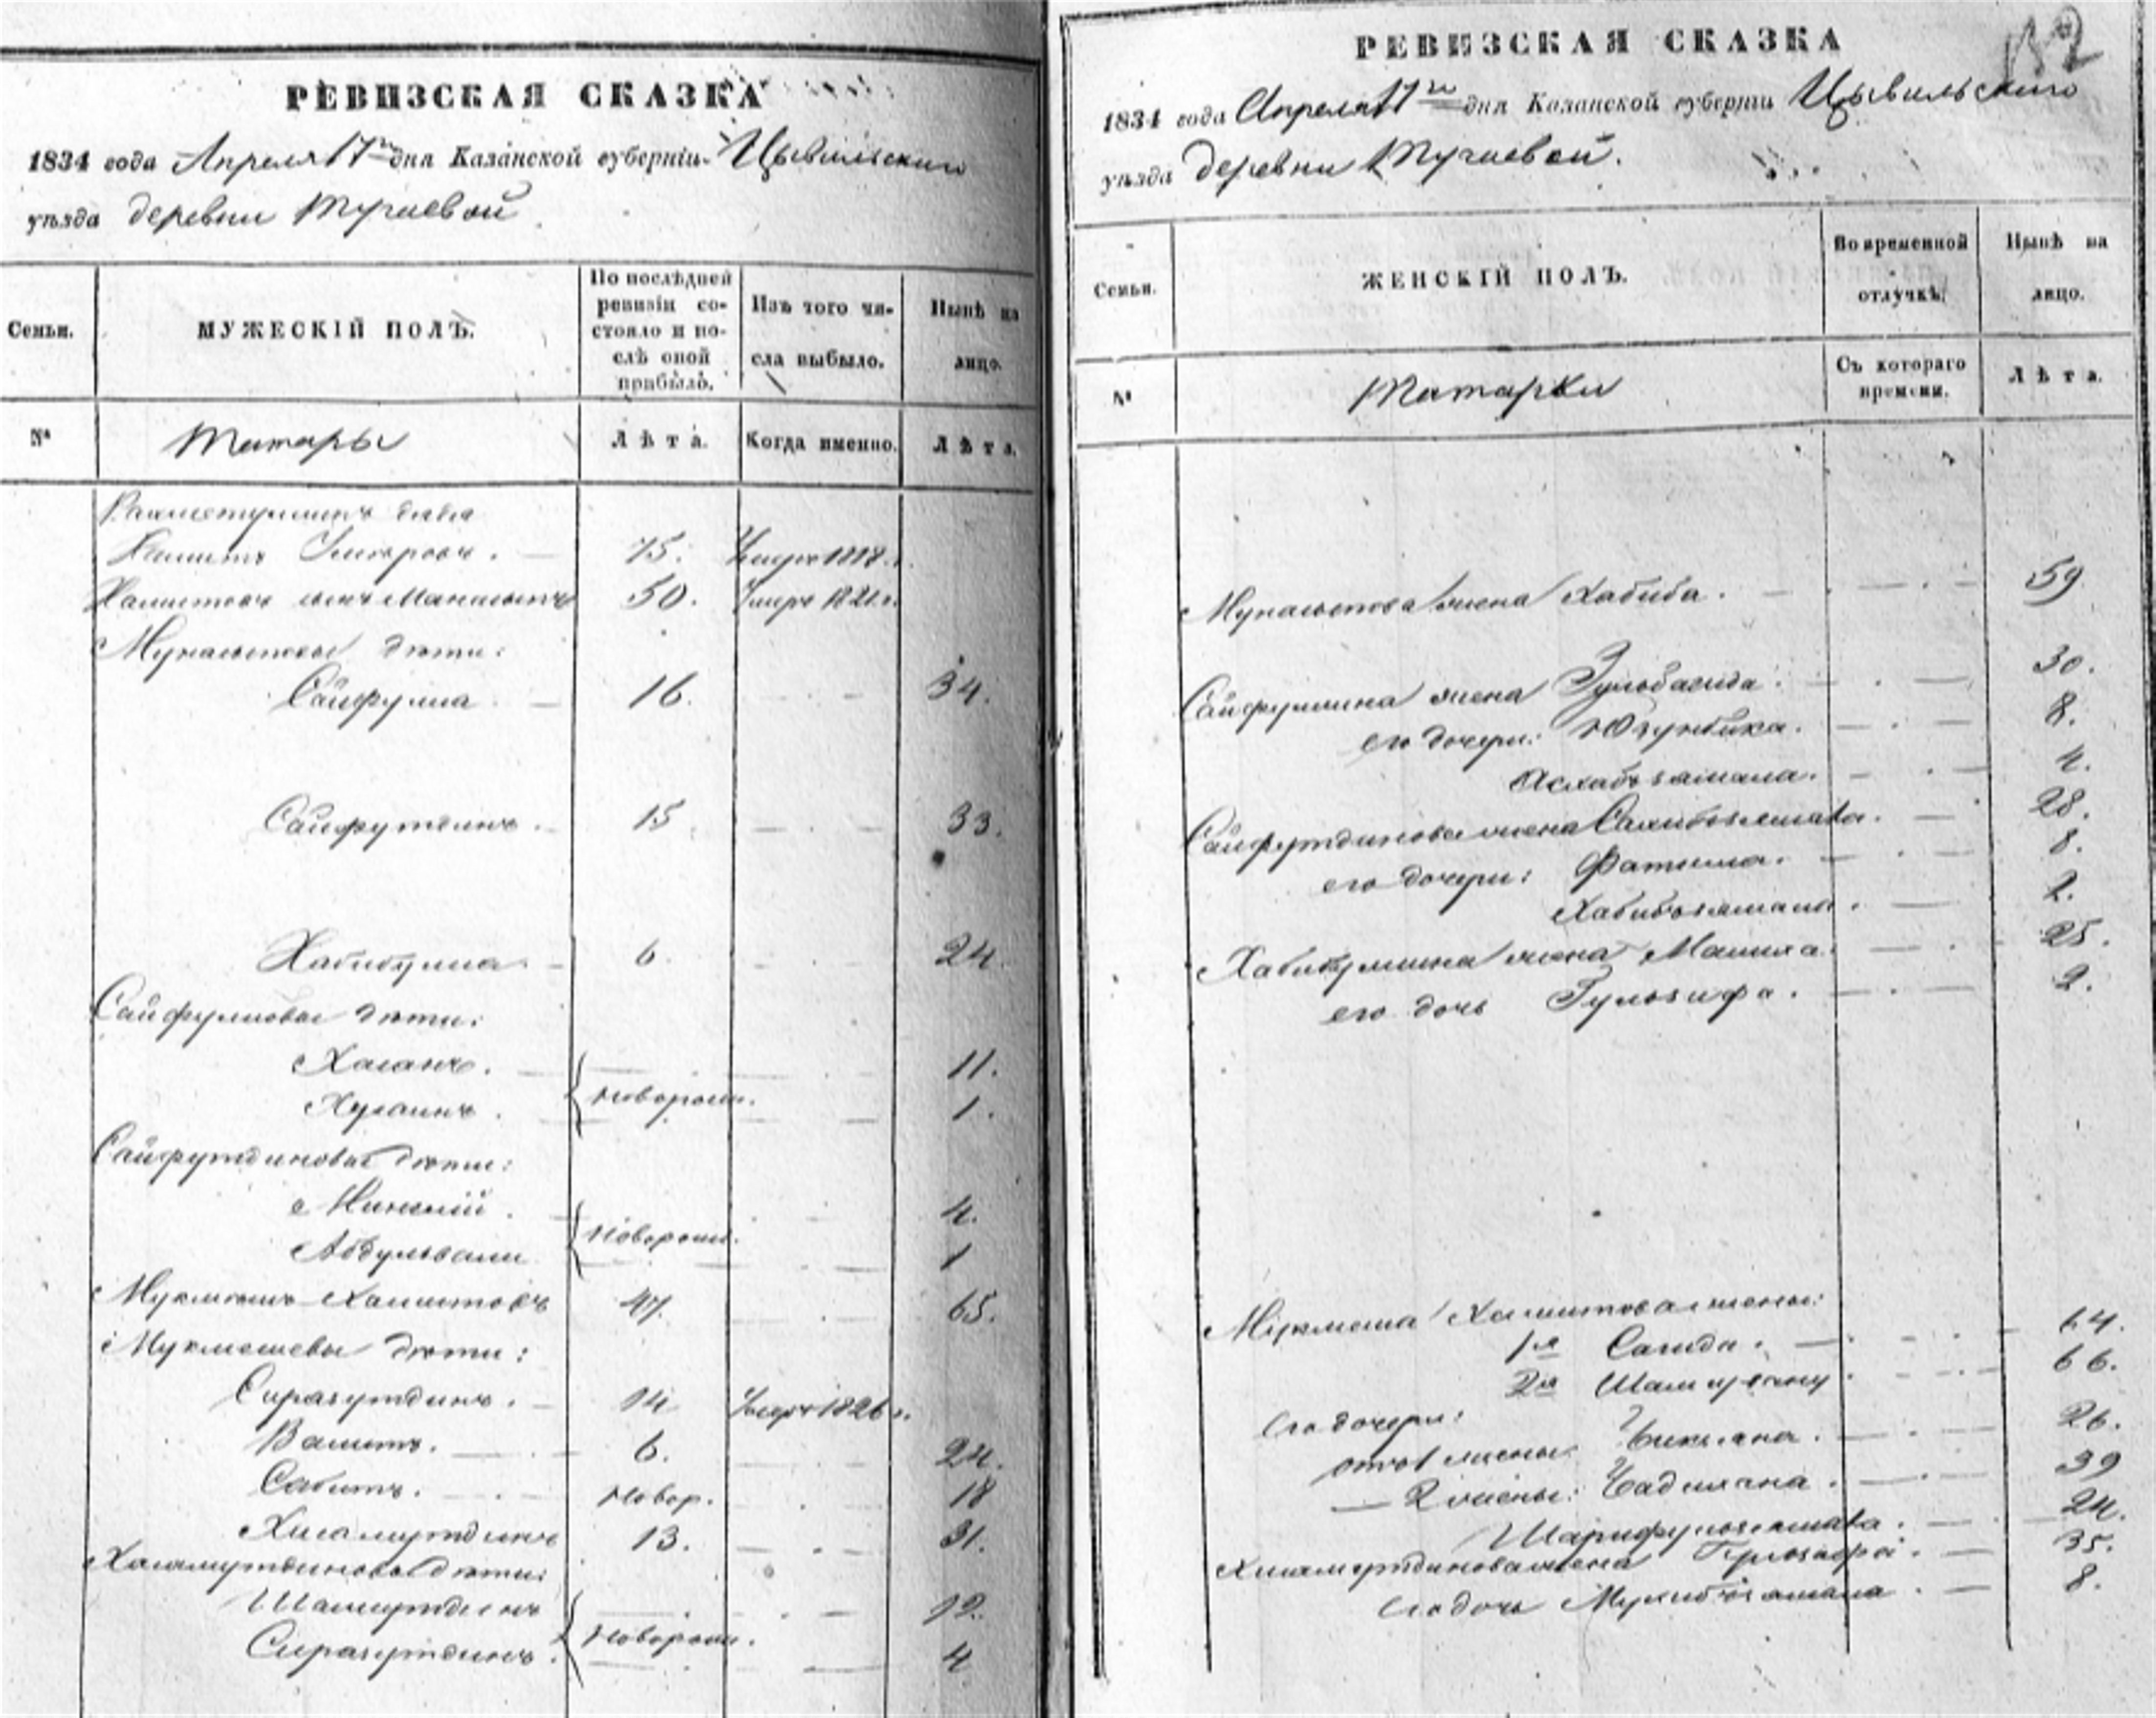 РЕВИЗСКАЯ СКАЗКА
1834 года Апреля 17го дня Казанской губерніи Цывильскаго
уѣзда деревни Тугаевой
Семьи.
МУЖЕСКІЙ ПОЛЪ.
По послѣдней ревизіи состояло и послѣ оной прибыло.
Изъ того числа выбыло.
Нынѣ на лицо.
№
Татары
Лѣта.
Когда именно.
Лѣта.
75. Умеръ 1818.
50. Умеръ 1821 г.
дѣти:
Сайфулла 16. 34.
Сайфутдинъ. 15 33.
Хабибулла 6. 24.
Сайфулловы дѣти:
Хасанъ. 11.
Новорож.
Хусаинъ. 1.
Сайфутдиновы дѣти:
4.
Новорож.
Абдулвали 1
Мукмешъ Хамитовъ 47. 65.
Мукмешевы дѣти:
Сиразутдинъ. 14 Умеръ 1826 г.
Валитъ. 6. 24.
Сабитъ. Новор. 18
Хисамутдинъ 13. 31.
Хисамутдиновы дѣти:
Шамсутдинъ 12.
Новорож.
Сиразутдинъ. 4
РЕВИЗСКАЯ СКАЗКА
132
1834 года Апреля 17го дня Казанской губерніи Цывильскаго
уѣзда деревни Тугаевой.
Семьи.
ЖЕНСКІЙ ПОЛЪ.
Во временной отлучкѣ.
Нынѣ на лицо.
№
Татарки
Съ котораго времени.
Лѣта.
жена Хабиба. 59.
Сайфуллина жена 30.
его дочери: Югунбика. 8.
4.
Сайфутдинова жена 28.
его дочери: Фатима. 8.
Хабибзямала. 2.
Хабибуллина жена 25.
его дочь Гульзифа. 2.
Мукмеша Хамитова жены:
1я Сагида. 64.
2я 66.
Его дочери:
от 1 жены 26.
— 2 жены: 39
24.
Хисамутдинова жена 35.
Его дочь 8.